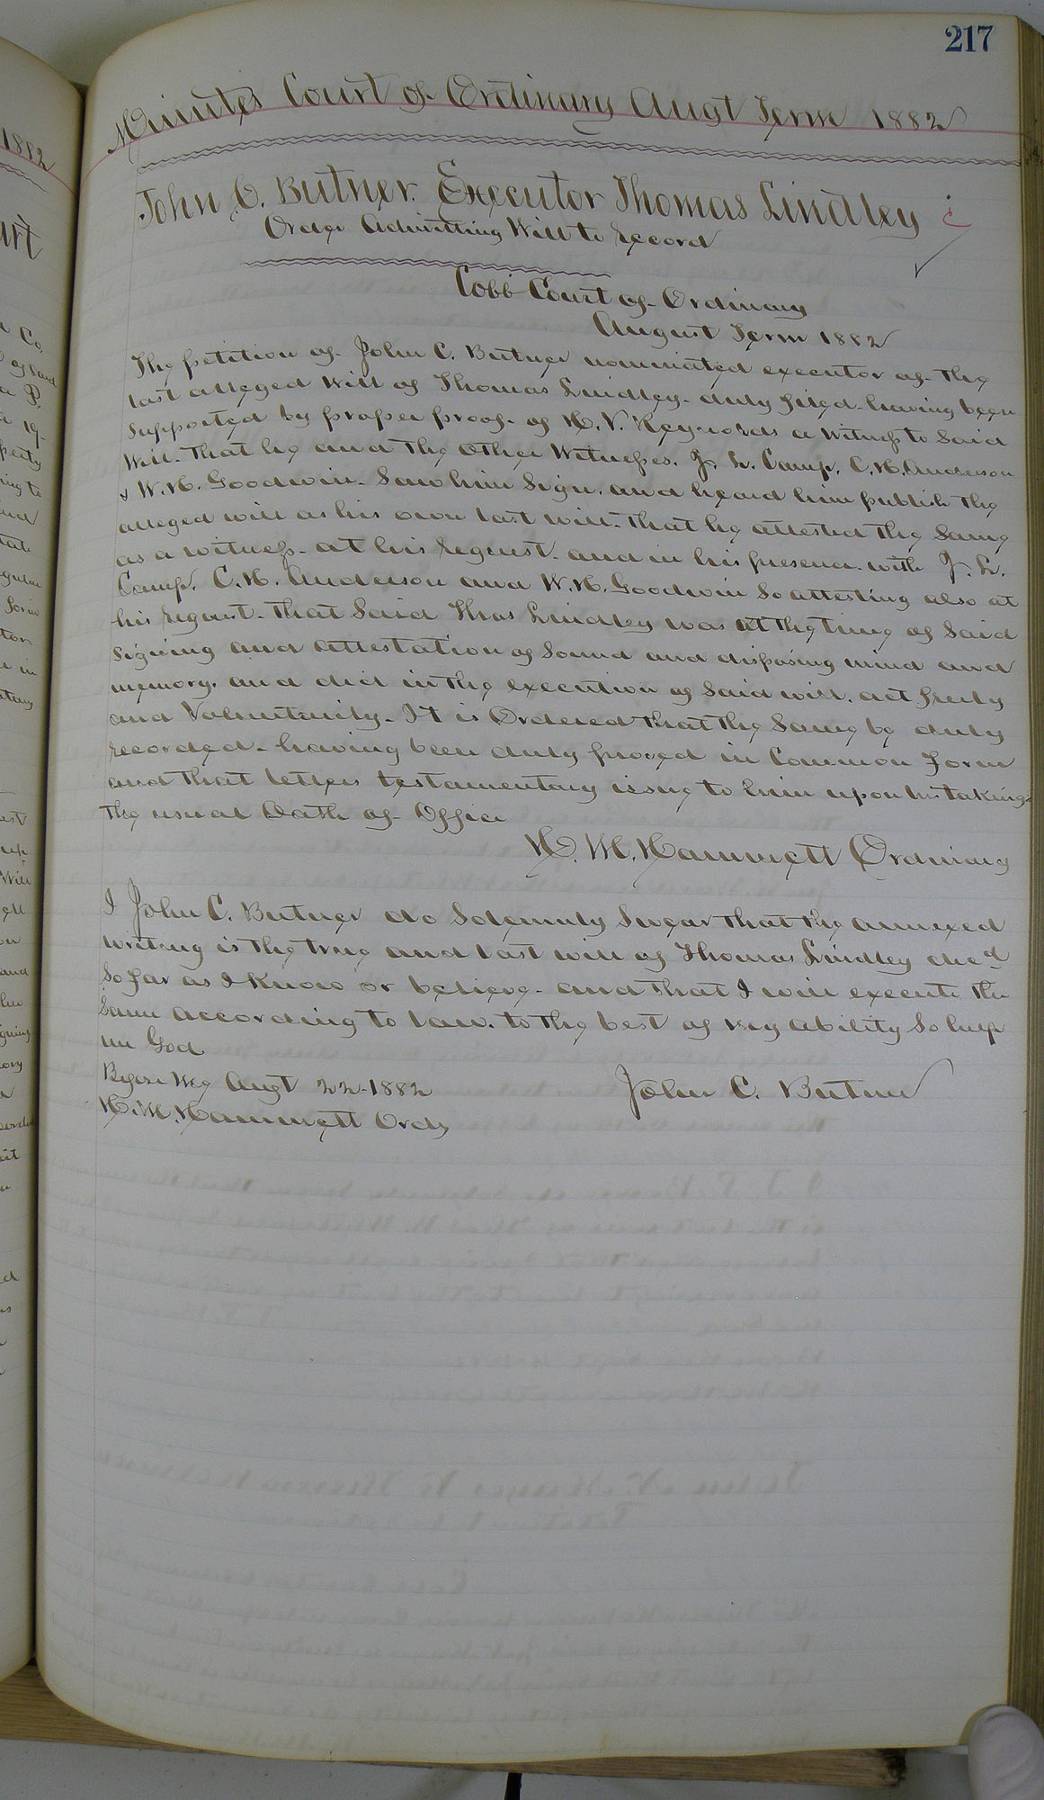 217
Minutes Court of Ordinary Augt Term 1882
John C. Butner. Executor Thomas Lindley
Order Admitting Will to record
Cobb Court of Ordinary
August Term 1882
The petition of John C. Butner nominated executor of the
last alleged will of Thomas Lindley duly filed having been
supported by proper proof of
Reynolds a witness to said
Will. That he and the other Witnesses, J. L. Camp, C. H. Anderson
& W. H. Goodwin saw him sign, and heard him publish the
alleged will as his own last will. That he attested the same
as a witness at his request and in his presence with J. L.
Camp. C. H. Anderson and W. H. Goodwin so attesting also at
his request. That Said Thos Lindley was at the time of Said
signing and attestation of sound and disposing mind and
memory, and did in the execution of said will, act freely
and Voluntarily. It is Ordered that the Same be duly
recorded having been duly proved in Common Form
and that letters testamentary issue to him upon his taking
the usual Oath of Office
H. M. Hammett Ordinary
I John C. Butner do Solemnly Swear that the annexed
writing is the true and last will of Thomas Lindley decd
So far as I know or believe and that I will execute the
Same according to law, to the best of my ability So help
me God
Before Me Augt 22 1882 John C. Butner
H. M. Hammett Ordy
1882